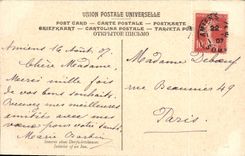 UNION POSTALE UNIVERSELLE
POST CARD — CARTE POSTALE — POSTKARTE
BRIEFKAART — CARTOLINA POSTALE — TARJETA PO
ОТКРЫТОЕ ПИСЬМО
AMIENS
Amiens 16 Août 07.
Chère Madame.
Merci mille fois
de vos bons souhaits.
Recevez mes meilleures
amitiés avec mes
vœux pour votre santé.
Marie
Madame Debeuf
rue Beaunier 49
Paris.